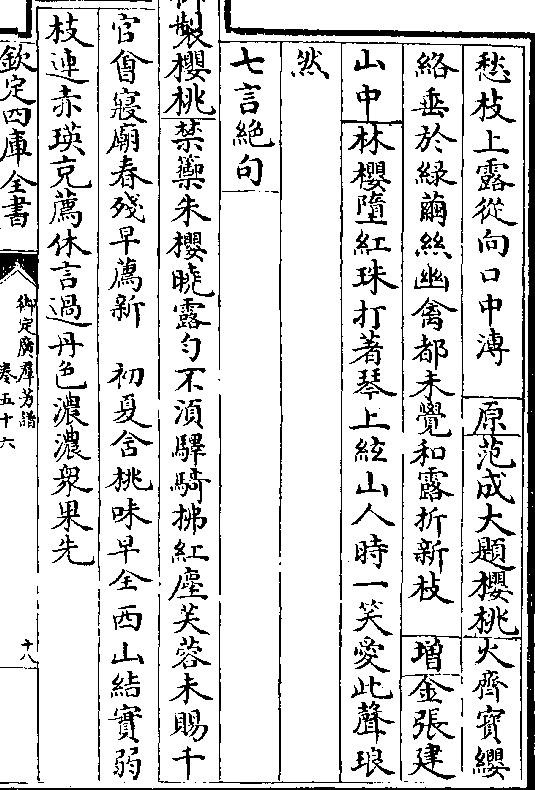 愁枝上露從向口中溥 原范成大題櫻桃火齊寶纓
絡垂於緑繭絲幽禽都未覺和露折新枝 増金張建
山中林櫻墮紅珠打著琴上絃山人時一笑愛此聲琅
然
七言絶句
御製櫻桃禁籞朱櫻曉露勻不湏驛騎拂紅塵芙蓉未賜千
官會寢廟春殘早薦新 初夏含桃味早全西山結實弱
枝連赤瑛克薦休言過丹色濃濃衆果先
欽定四庫全書
御定廣羣芳譜
卷五十六
十八